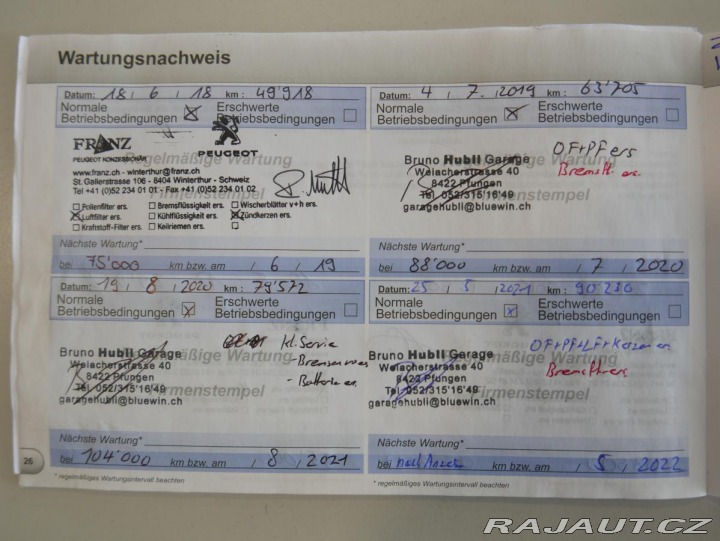 Wartungsnachweis
Datum: 18 / 6 / 18 km: 49'918
Normale Betriebsbedingungen ☒ Erschwerte Betriebsbedingungen ☐
FRANZ
PEUGEOT KONZESSIONÄR
PEUGEOT
regelmäßige Wartung
www.franz.ch - winterthur@franz.ch
St. Gallerstrasse 106 - 8404 Winterthur - Schweiz
Tel +41 (0)52 234 01 01 - Fax +41 (0)52 234 01 02
Firmenstempel
☐ Pollenfilter ers. ☐ Bremsflüssigkeit ers. ☐ Wischerblätter v+h ers.
☒ Luftfilter ers. ☐ Kühlflüssigkeit ers. ☒ Zündkerzen ers.
☐ Kraftstoff-Filter ers. ☐ Keilriemen ers. ☐
Nächste Wartung*
bei 75'000 km bzw. am / 6 / 19
Datum: 4 / 7. / 2019 km: 63'705
Normale Betriebsbedingungen ☒ Erschwerte Betriebsbedingungen ☐
regelmäßige Wartung
Bruno Hubli Garage
Weiacherstrasse 40
8422 Pfungen
Tel. 052/315'16'49
garagehubli@bluewin.ch
Firmenstempel
OF+PF ers
ers.
Nächste Wartung*
bei 88'000 km bzw. am / 7 / 2020
Datum: 19 / 8 / 2020 km: 79'572
Normale Betriebsbedingungen ☒ Erschwerte Betriebsbedingungen ☐
regelmäßige Wartung
Bruno Hubli Garage
Weiacherstrasse 40
8422 Pfungen
Tel. 052/315'16'49
garagehubli@bluewin.ch
Firmenstempel
kl. Service
- Batterie ers.
Nächste Wartung*
bei 104'000 km bzw. am / 8 / 2021
Datum: 25 / 5 / 2021 km: 90'230
Normale Betriebsbedingungen ☒ Erschwerte Betriebsbedingungen ☐
regelmäßige Wartung
Bruno Hubli Garage
Weiacherstrasse 40
8422 Pfungen
Tel. 052/315'16'49
garagehubli@bluewin.ch
Firmenstempel
OF+PF+LF+Kerzen ers.
Nächste Wartung*
bei km bzw. am / 5 / 2022
26
* regelmäßiges Wartungsintervall beachten
* regelmäßiges Wartungsintervall beachten
RAJAUT.CZ